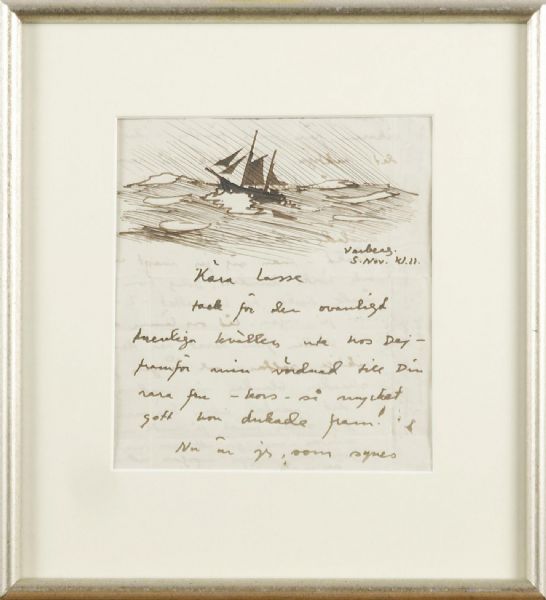 Varberg.
5. Nov. kl. 11.
Kära Lasse
tack för den ovanligt
trevliga kvällen ute hos Dej –
framför min vördnad till Din
rara fru – kors – så mycket
gott hon dukade fram!
Nu är jg, som synes